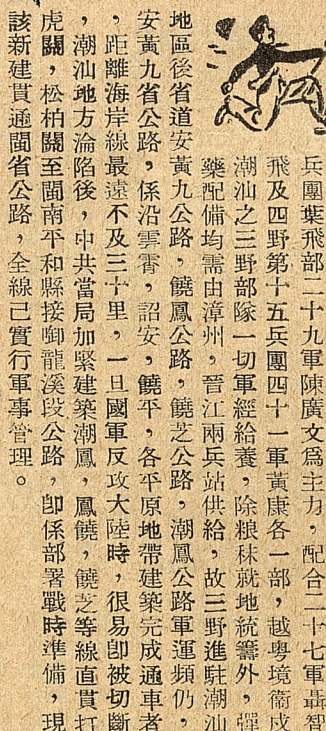 兵團葉飛部二十九軍陳廣文為主力，配合二十七軍聶智
飛及四野第十五兵團四十一軍黃康各一部，越粵境衞戍
潮汕之三野部隊一切軍經給養，除粮秣就地統籌外，彈
藥配備均需由漳州，晉江兩兵站供給，故三野進駐潮汕
地區後省道安黃九公路，饒鳳公路，饒芝公路，潮鳳公路軍運頻仍，
安黃九省公路，係沿雲霄，詔安，饒平，各平原地帶建築完成通車者
，距離海岸線最遠不及三十里，一旦國軍反攻大陸時，很易即被切斷
，潮汕地方淪陷後，中共當局加緊建築潮鳳，鳳饒，饒芝等線直貫打
虎關，松柏關至閩南平和縣接御龍溪段公路，即係部署戰時準備，現
該新建貫通閩省公路，全線已實行軍事管理。